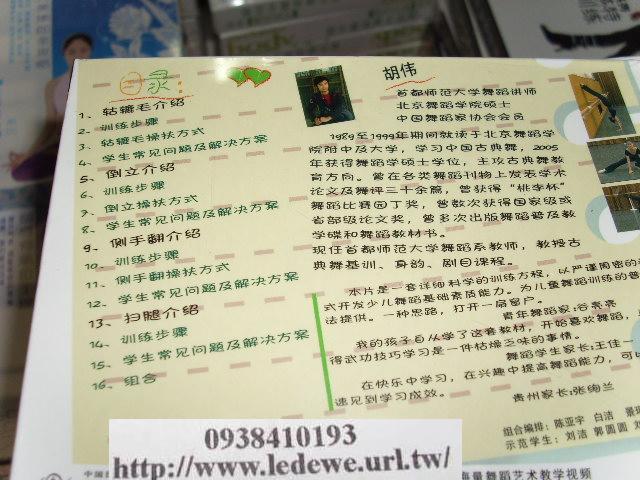 目录：
1、毽辘毛介绍
2、训练步骤
3、毽辘毛操扶方式
4、学生常见问题及解决方案
5、倒立介绍
6、训练步骤
7、倒立操扶方式
8、学生常见问题及解决方案
9、侧手翻介绍
10、训练步骤
11、侧手翻操扶方式
12、学生常见问题及解决方案
13、扫腿介绍
14、训练步骤
15、学生常见问题及解决方案
16、组合
胡伟
首都师范大学舞蹈讲师
北京舞蹈学院硕士
中国舞蹈家协会会员
1989至1999年期间就读于北京舞蹈学
院附中及大学，学习中国古典舞，2005
年获得舞蹈学硕士学位，主攻古典舞教
育方向。曾在各类舞蹈刊物上发表学术
论文及舞评三十余篇，曾获得“桃李杯”
舞蹈比赛园丁奖，曾数次获得国家级或
省部级论文奖，曾多次出版舞蹈普及教
学碟和舞蹈教材书。
现任首都师范大学舞蹈系教师，教授古
典舞基训、身韵、剧目课程。
本片是一套详细科学的训练方程，以严谨周密的
式开发少儿舞蹈基础素质能力。为儿童舞蹈训练的普
法提供。一种思路，打开一扇窗户。
青年舞蹈家：谷亮亮
我的孩子自从学了这套教材，开始喜欢舞蹈，
得武功技巧学习是一件枯燥乏味的事情。
舞蹈学生家长：王佳一
在快乐中学习，在兴趣中提高舞蹈能力，可
速见到学习成效。
贵州家长：张绚兰
组合编排：陈亚宇 白洁
示范学生：刘洁 郭圆圆
0938410193
http://www.ledewe.url.tw/
海量舞蹈艺术教学视频